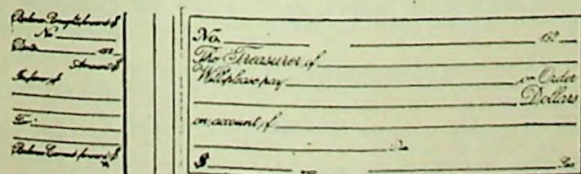 Balance Brought forward $
No.
Date 192
Amount $
In favor of
For
Balance Carried forward $
No. 192
The Treasurer of
Will please pay or Order
Dollars
on account of
$